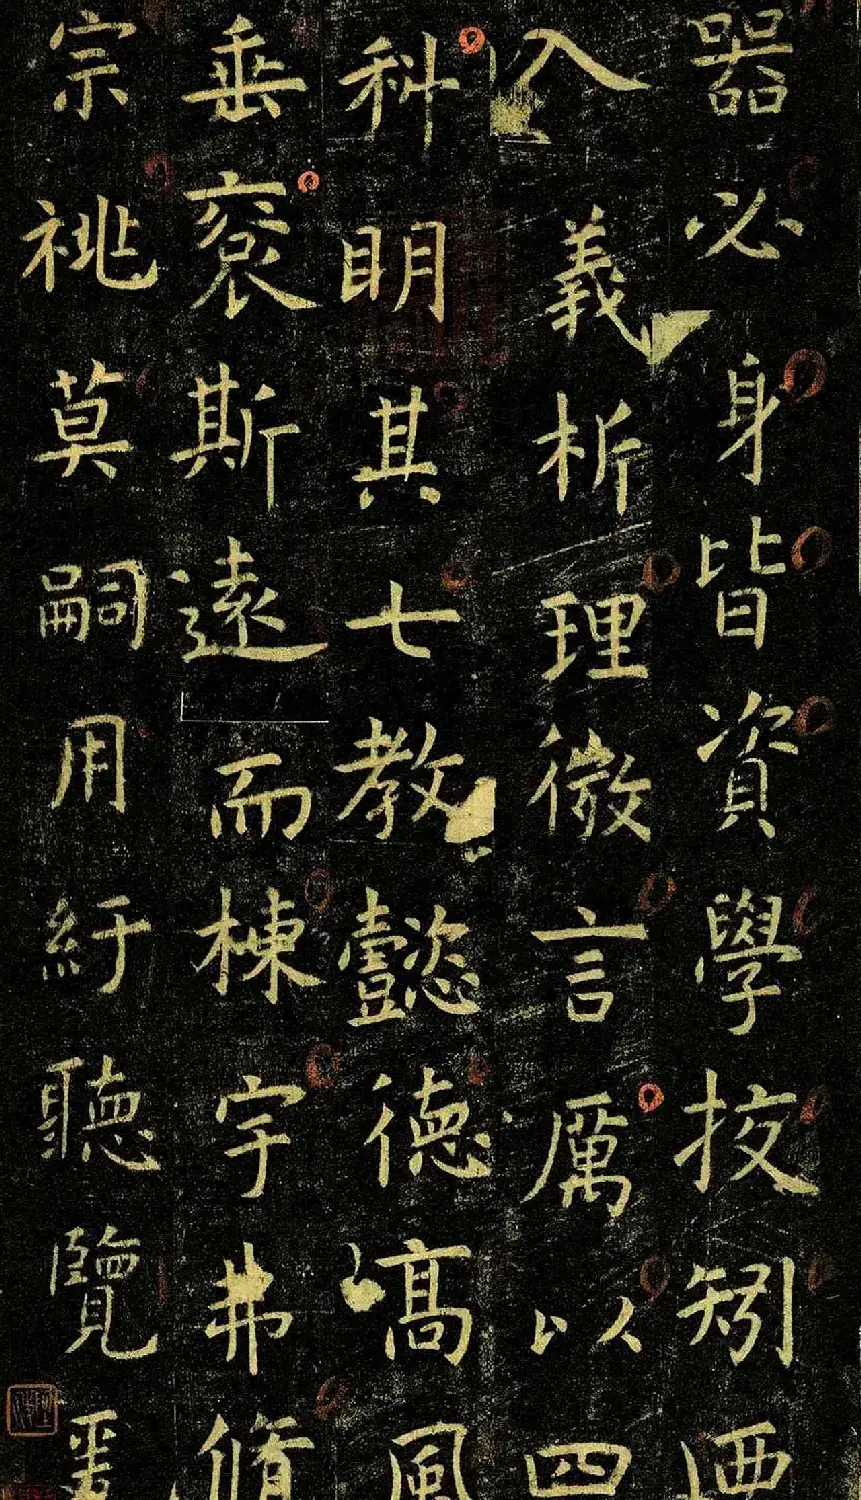 噐必身皆資學挍矧迺
入義析理微言厲以四
科明其七教懿德高風
垂褒斯遠而棟宇弗脩
宗祧莫嗣用紆聽覽